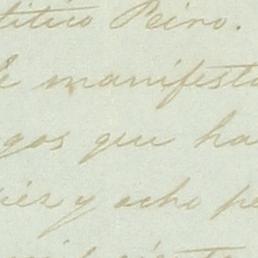 títico Peiro.
e manifesta
gos que ha
iéz y ocho pe